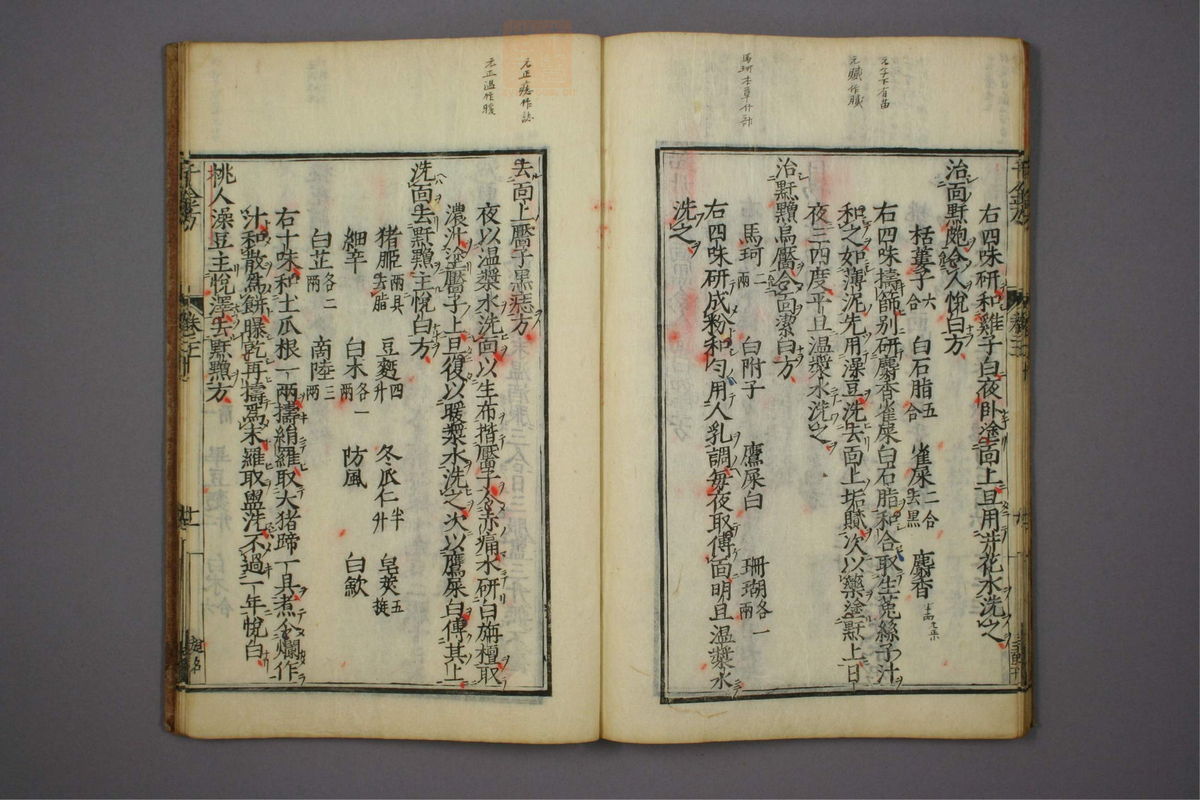 右四味研和雞子白夜臥塗面上旦用井花水洗之
治面䵟皰令人悅白方
栝蔞子六合 白石脂五合 雀屎二合去黑 麝香
右四味擣篩別研麝香雀屎白石脂和合取生菟絲子汁
和之如薄泥先用澡豆洗去面上垢膩次以藥塗䵟上日
夜三四度平旦溫漿水洗之
治䵟䵳烏靨令面潔白方
馬珂二兩 白附子 鷹屎白 珊瑚各一兩
右四味研成粉和勻用人乳調每夜取傅面明旦溫漿水
洗之
去面上靨子黑痣方
夜以溫漿水洗面以生布揩靨子令赤痛水研白旃檀取
濃汁塗靨子上旦復以暖漿水洗之次以鷹屎白傅其上
洗面去䵟䵳主悅白方
猪胰兩具去脂 豆麵四升 冬瓜仁半升 皂莢五挺
細辛 白朮各一兩 防風 白蘞
白芷各二兩 商陸三兩
右十味和土瓜根一兩擣絹羅取大猪蹄一具煮令爛作
汁和散為餅曝乾再擣為末羅取盥洗不過一年悅白
桃人澡豆主悅澤去䵟䵳方
元字下有苗
元膩作膱
馬珂本草介部
元正痣作誌
元正溫作暖
千金方